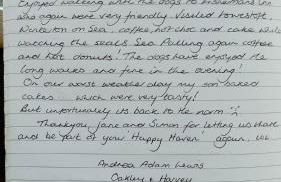 Enjoyed walking with the dogs to Fishermans Inn
who again were very friendly. Visited Lowestoft,
on Sea, coffee, hot choc and cake while
watching the seals Sea Palling again coffee
and hot donuts! The dogs have enjoyed its
long walks and fire in the evening!
On our worst weather day my son baked
cakes which were very tasty!
But unfortunately its back to the norm
Thankyou Jane and Simon for letting us share
and be part of your 'Happy Haven' again,
Andrea Adam Lewis
Oakley & Harvey